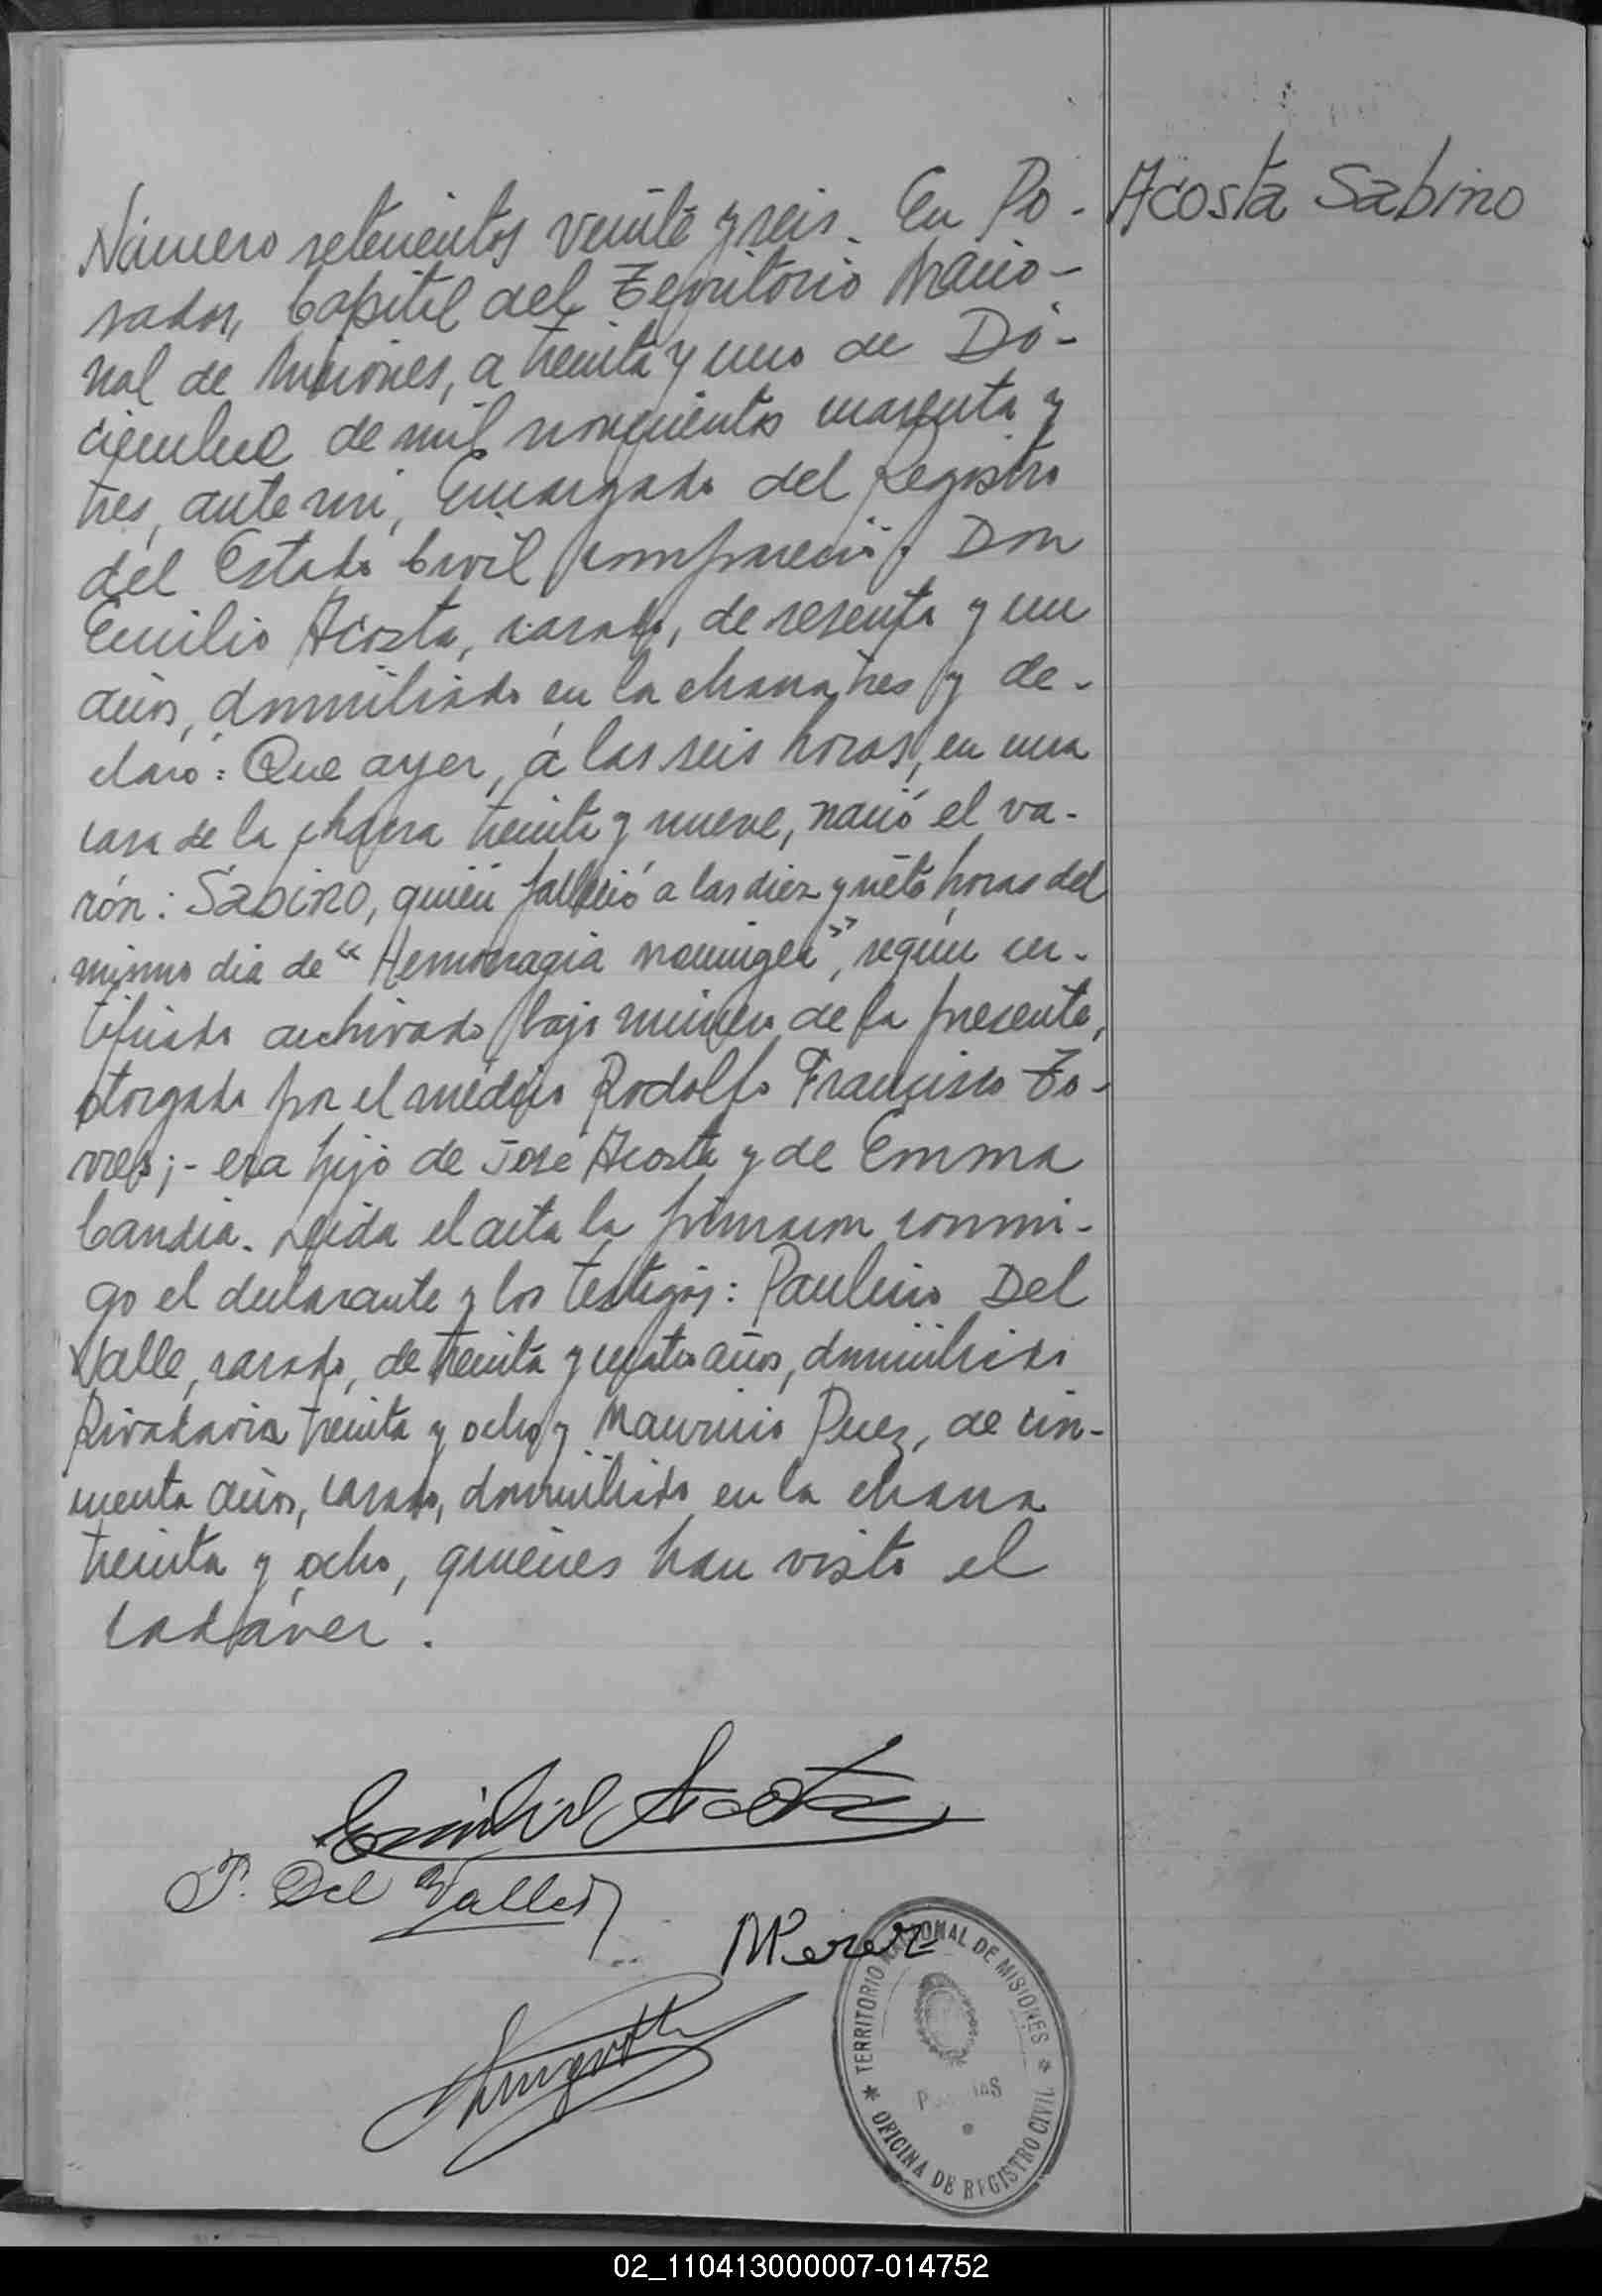 Acosta Sabino
Número setecientos veinte y seis. En Po-
sadas, Capital del Territorio Nacio-
nal de Misiones, a treinta y uno de Di-
ciembre de mil novecientos cuarenta y
tres, ante mi, Encargado del Registro
del Estado Civil compareció: Don
Emilio Acosta, casado, de sesenta y un
años, domiciliado en la chacra tres y de-
claró: Que ayer, á las seis horas, en una
casa de la chacra treinta y nueve, nació el va-
rón: Sabino, quien falleció a las diez y siete horas del
mismo dia de "Hemorragia meningea", según cer-
tificado archivado bajo número de la presente,
otorgado por el médico Rodolfo Francisco To-
rres;- era hijo de José Acosta y de Emma
Candia. Leida el acta la firmaron conmi-
go el declarante y los testigos: Paulino Del
Valle, casado, de treinta y cuatro años, domiciliado
Rivadavia treinta y ocho y Mauricio Perez, de cin-
cuenta años, casado, domiciliado en la chacra
treinta y ocho, quienes han visto el
cadáver.
Emilio Acosta
P. Del Valle
MPerez
TERRITORIO NACIONAL DE MISIONES
POSADAS
* OFICINA DE REGISTRO CIVIL *
02_110413000007-014752